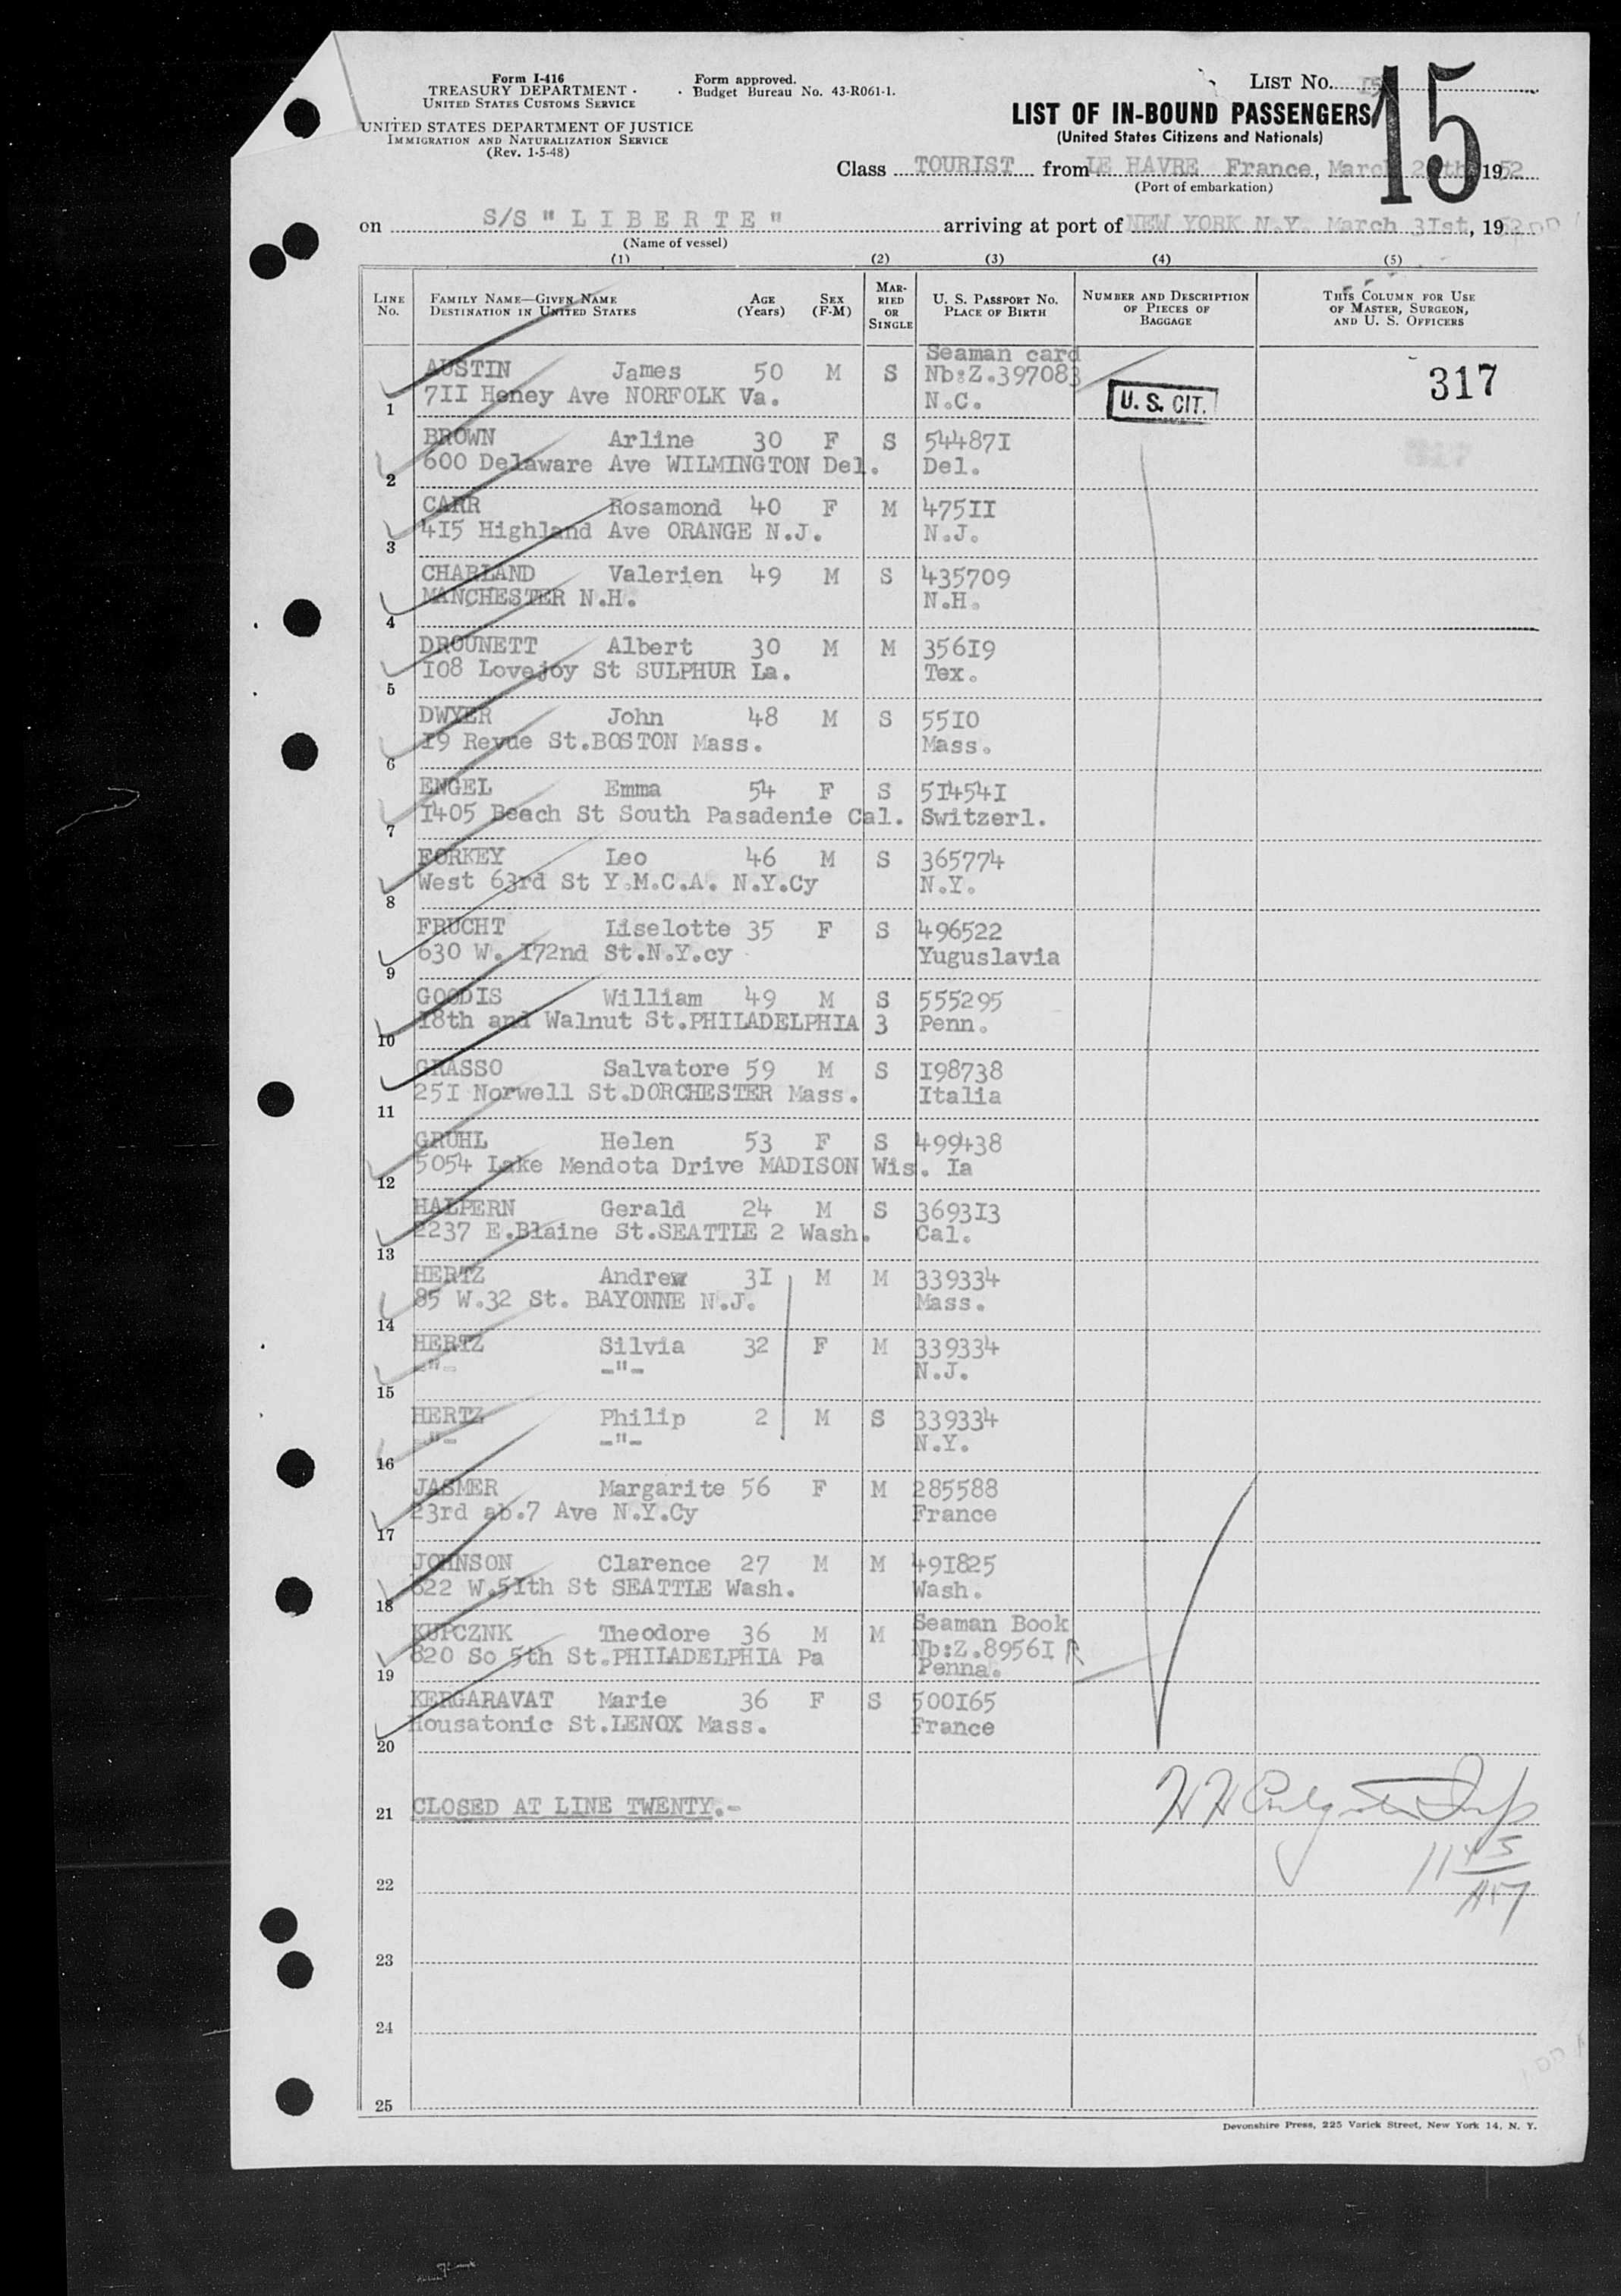 Form I-416
TREASURY DEPARTMENT
UNITED STATES CUSTOMS SERVICE
UNITED STATES DEPARTMENT OF JUSTICE
IMMIGRATION AND NATURALIZATION SERVICE
(Rev. 1-5-48)
Form approved.
Budget Bureau No. 43-R061-1.
LIST No. 15
15
LIST OF IN-BOUND PASSENGERS
(United States Citizens and Nationals)
Class TOURIST from LE HAVRE France, March 1952
(Port of embarkation)
on S/S " L I B E R T E " arriving at port of NEW YORK N.Y. March 3Ist, 195
(Name of vessel)
(1) (2) (3) (4) (5)
LINE No.
FAMILY NAME—GIVEN NAME
DESTINATION IN UNITED STATES
AGE (Years)
SEX (F-M)
MARRIED OR SINGLE
U. S. PASSPORT NO.
PLACE OF BIRTH
NUMBER AND DESCRIPTION OF PIECES OF BAGGAGE
THIS COLUMN FOR USE OF MASTER, SURGEON, AND U. S. OFFICERS
Seaman card
AUSTIN James 50 M S Nb:Z.397083 317
1 7II Honey Ave NORFOLK Va. N.C. U. S. CIT.
BROWN Arline 30 F S 54487I
2 600 Delaware Ave WILMINGTON Del. Del.
CARR Rosamond 40 F M 475II
3 4I5 Highland Ave ORANGE N.J. N.J.
CHARLAND Valerien 49 M S 435709
4 MANCHESTER N.H. N.H.
DROUNETT Albert 30 M M 356I9
5 I08 Lovejoy St SULPHUR La. Tex.
DWYER John 48 M S 55I0
6 I9 Revue St.BOSTON Mass. Mass.
ENGEL Emma 54 F S 5I454I
7 I405 Beach St South Pasadenie Cal. Switzerl.
FORKEY Leo 46 M S 365774
8 West 63rd St Y.M.C.A. N.Y.Cy N.Y.
FRUCHT Liselotte 35 F S 496522
9 630 W. I72nd St.N.Y.cy Yuguslavia
GOODIS William 49 M S 555295
10 I8th and Walnut St.PHILADELPHIA 3 Penn.
GRASSO Salvatore 59 M S I98738
11 25I Norwell St.DORCHESTER Mass. Italia
GRUHL Helen 53 F S 499438
12 5054 Lake Mendota Drive MADISON Wis. Ia
HALPERN Gerald 24 M S 3693I3
13 2237 E.Blaine St.SEATTLE 2 Wash. Cal.
HERTZ Andrew 3I M M 339334
14 85 W.32 St. BAYONNE N.J. Mass.
HERTZ Silvia 32 F M 339334
15 -"- -"- N.J.
HERTZ Philip 2 M S 339334
16 -"- -"- N.Y.
JASMER Margarite 56 F M 285588
17 23rd ab.7 Ave N.Y.Cy France
JOHNSON Clarence 27 M M 49I825
18 622 W.5Ith St SEATTLE Wash. Wash.
Seaman Book
KUPCZNK Theodore 36 M M Nb:Z.8956I R
19 820 So 5th St.PHILADELPHIA Pa Penna.
KERGARAVAT Marie 36 F S 500I65
20 Housatonic St.LENOX Mass. France
21 CLOSED AT LINE TWENTY.-
22
23
24
25
Devonshire Press, 225 Varick Street, New York 14, N. Y.